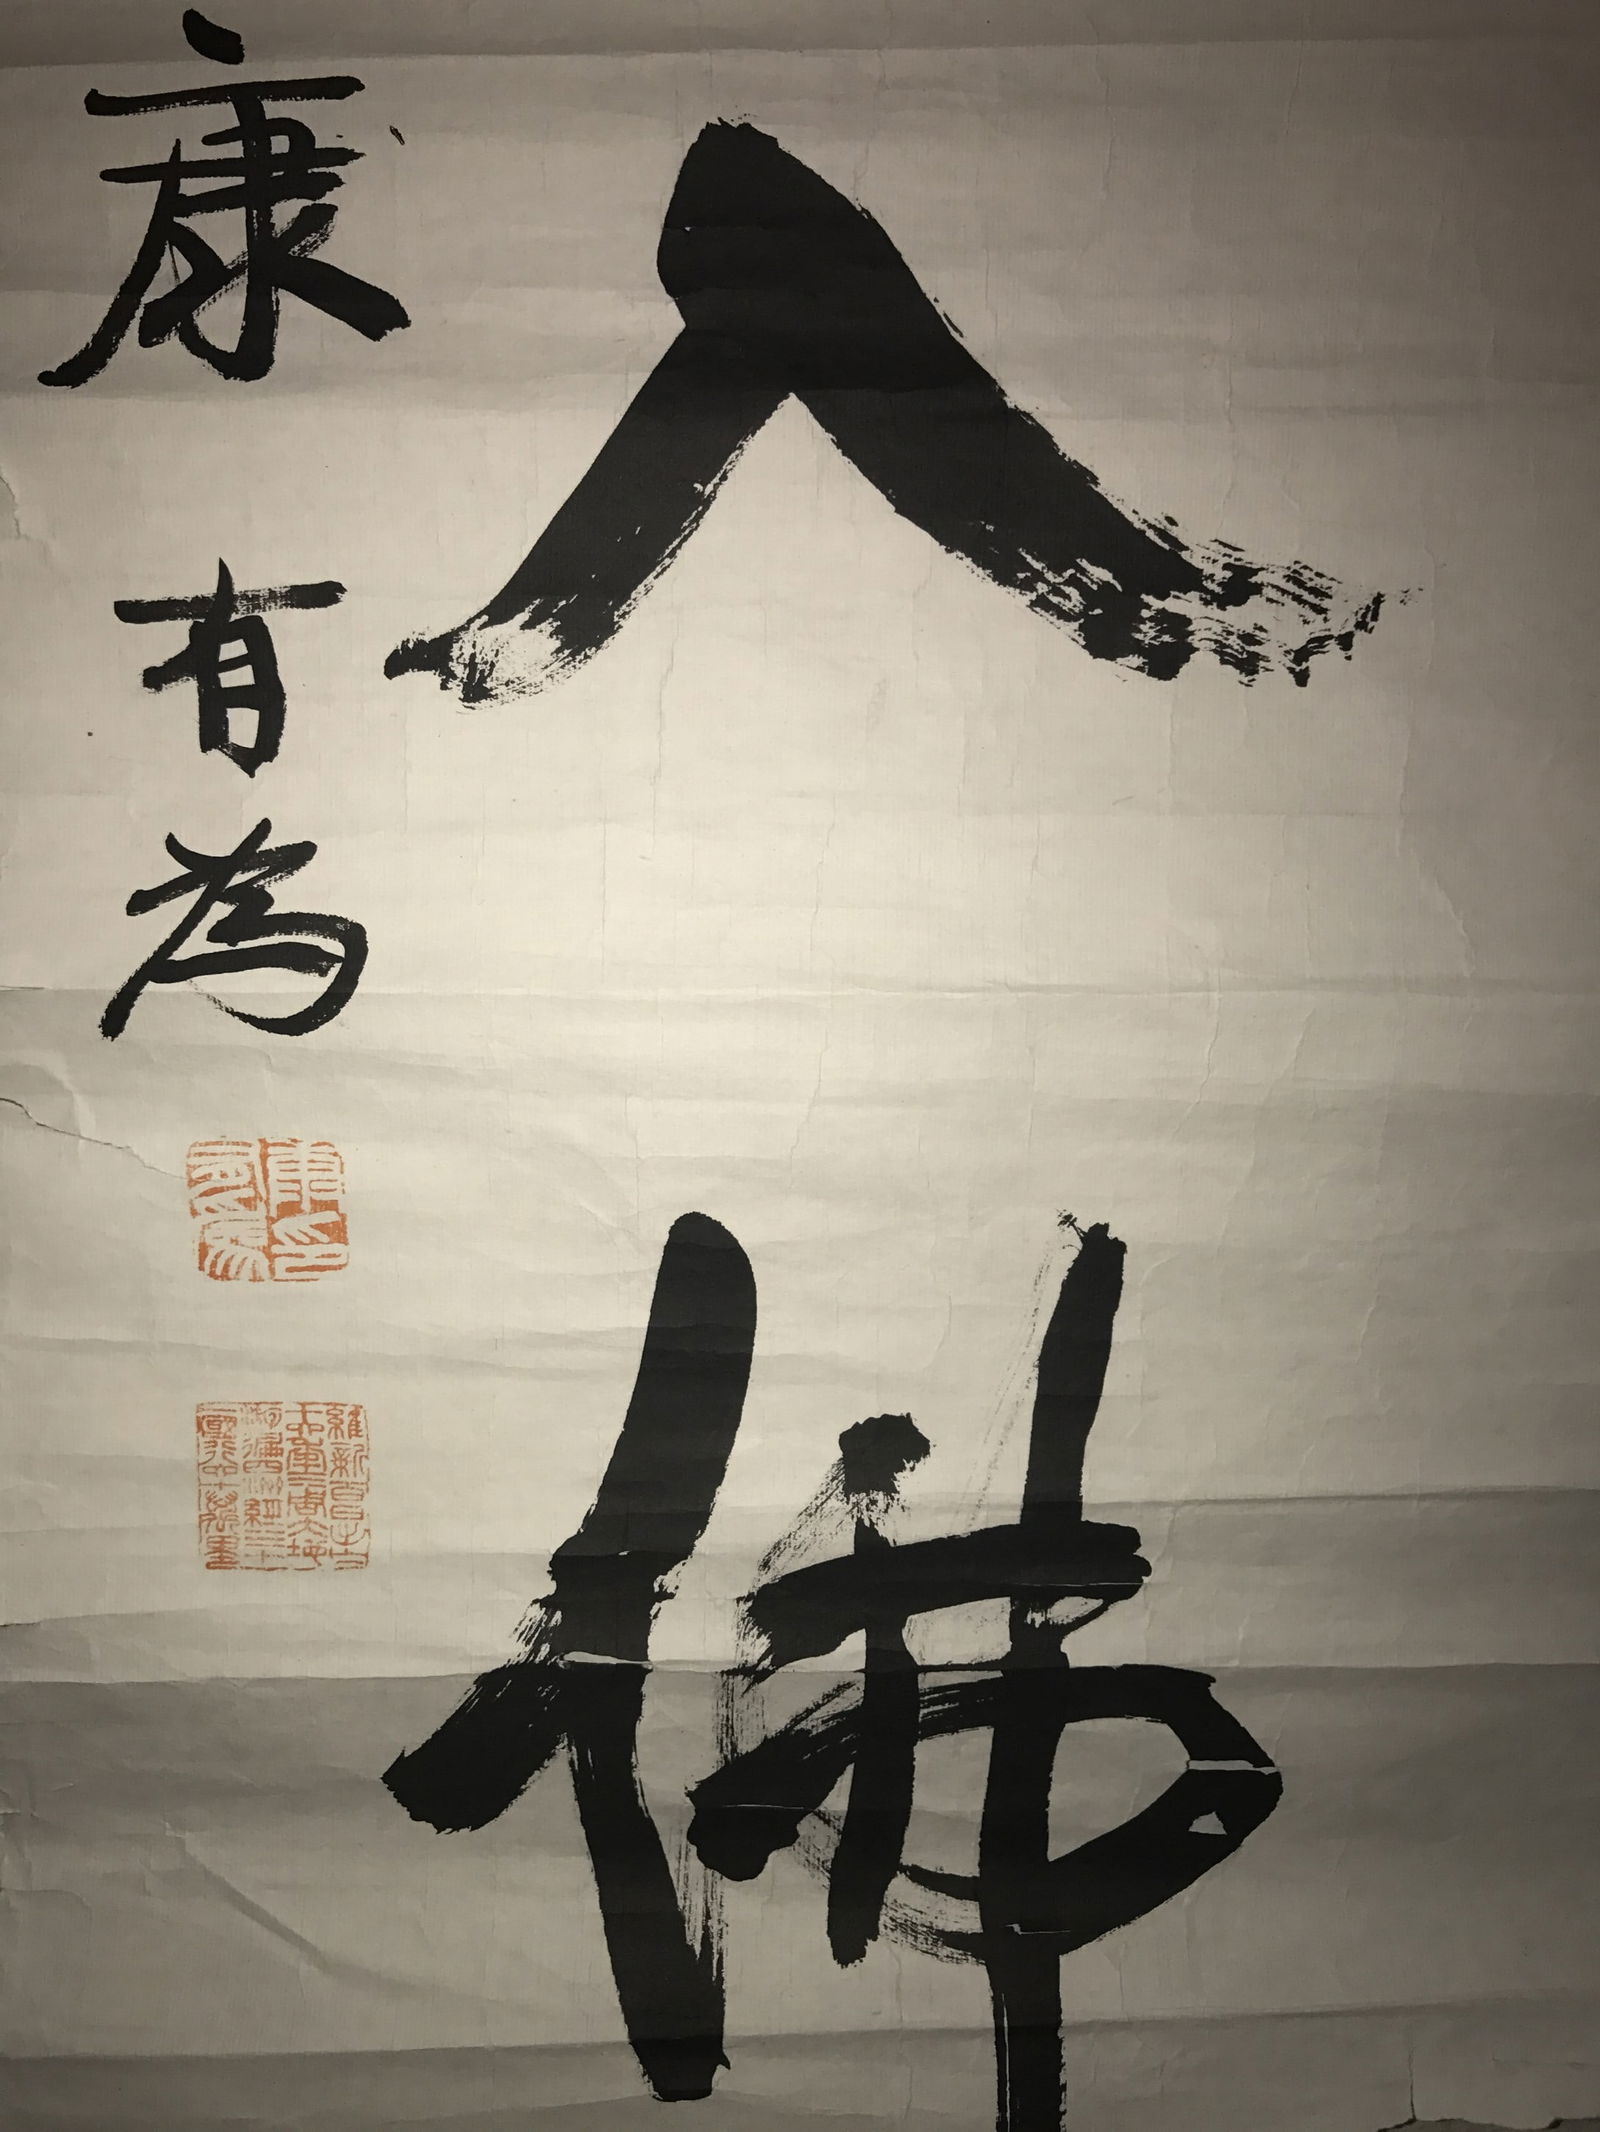 入佛
康有為
康有為印
維新百日出亡
十六年三周大地
游遍四洲經三十
一國行六十萬里